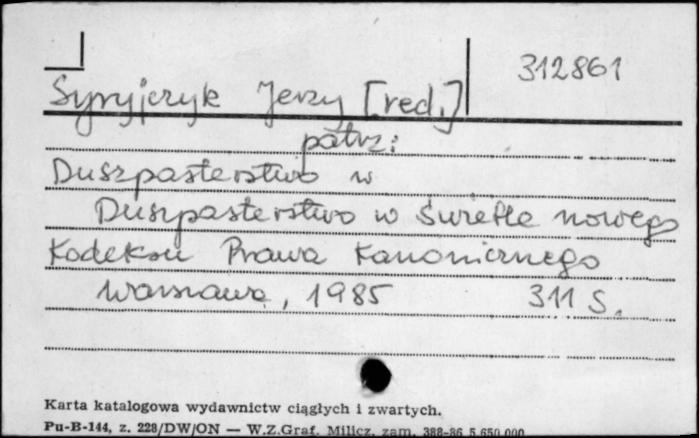 312861
Syryjczyk Jerzy [red.]
patrz:
Duszpasterstwo w
Duszpasterstwo w świetle nowego
Kodeksu Prawa Kanonicznego
Warszawa, 1985 311 S.
Karta katalogowa wydawnictw ciągłych i zwartych.
Pu-B-144, z. 228/DW/ON — W.Z.Graf. Milicz, zam. 388-86 5.650.000